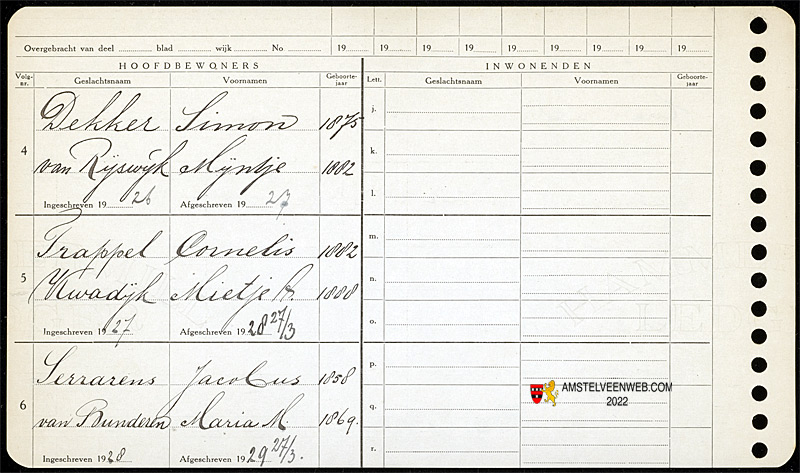 Overgebracht van deel blad wijk No 19 19 19 19 19 19 19 19 19
HOOFDBEWONERS INWONENDEN
Volg-nr. Geslachtsnaam Voornamen Geboorte-jaar Lett. Geslachtsnaam Voornamen Geboorte-jaar
4
Dekker Simon 1875
van Rijswijk Mijntje 1882
Ingeschreven 1926 Afgeschreven 1927
j.
k.
l.
5
Trappel Cornelis 1882
Kwadijk Mietje 1888
Ingeschreven 1927 Afgeschreven 1928 27/3
m.
n.
o.
6
Serrarens Jacobus 1858
van Bunderen Maria M. 1869.
Ingeschreven 1928 Afgeschreven 1929 27/3.
p.
q.
r.
AMSTELVEENWEB.COM
2022